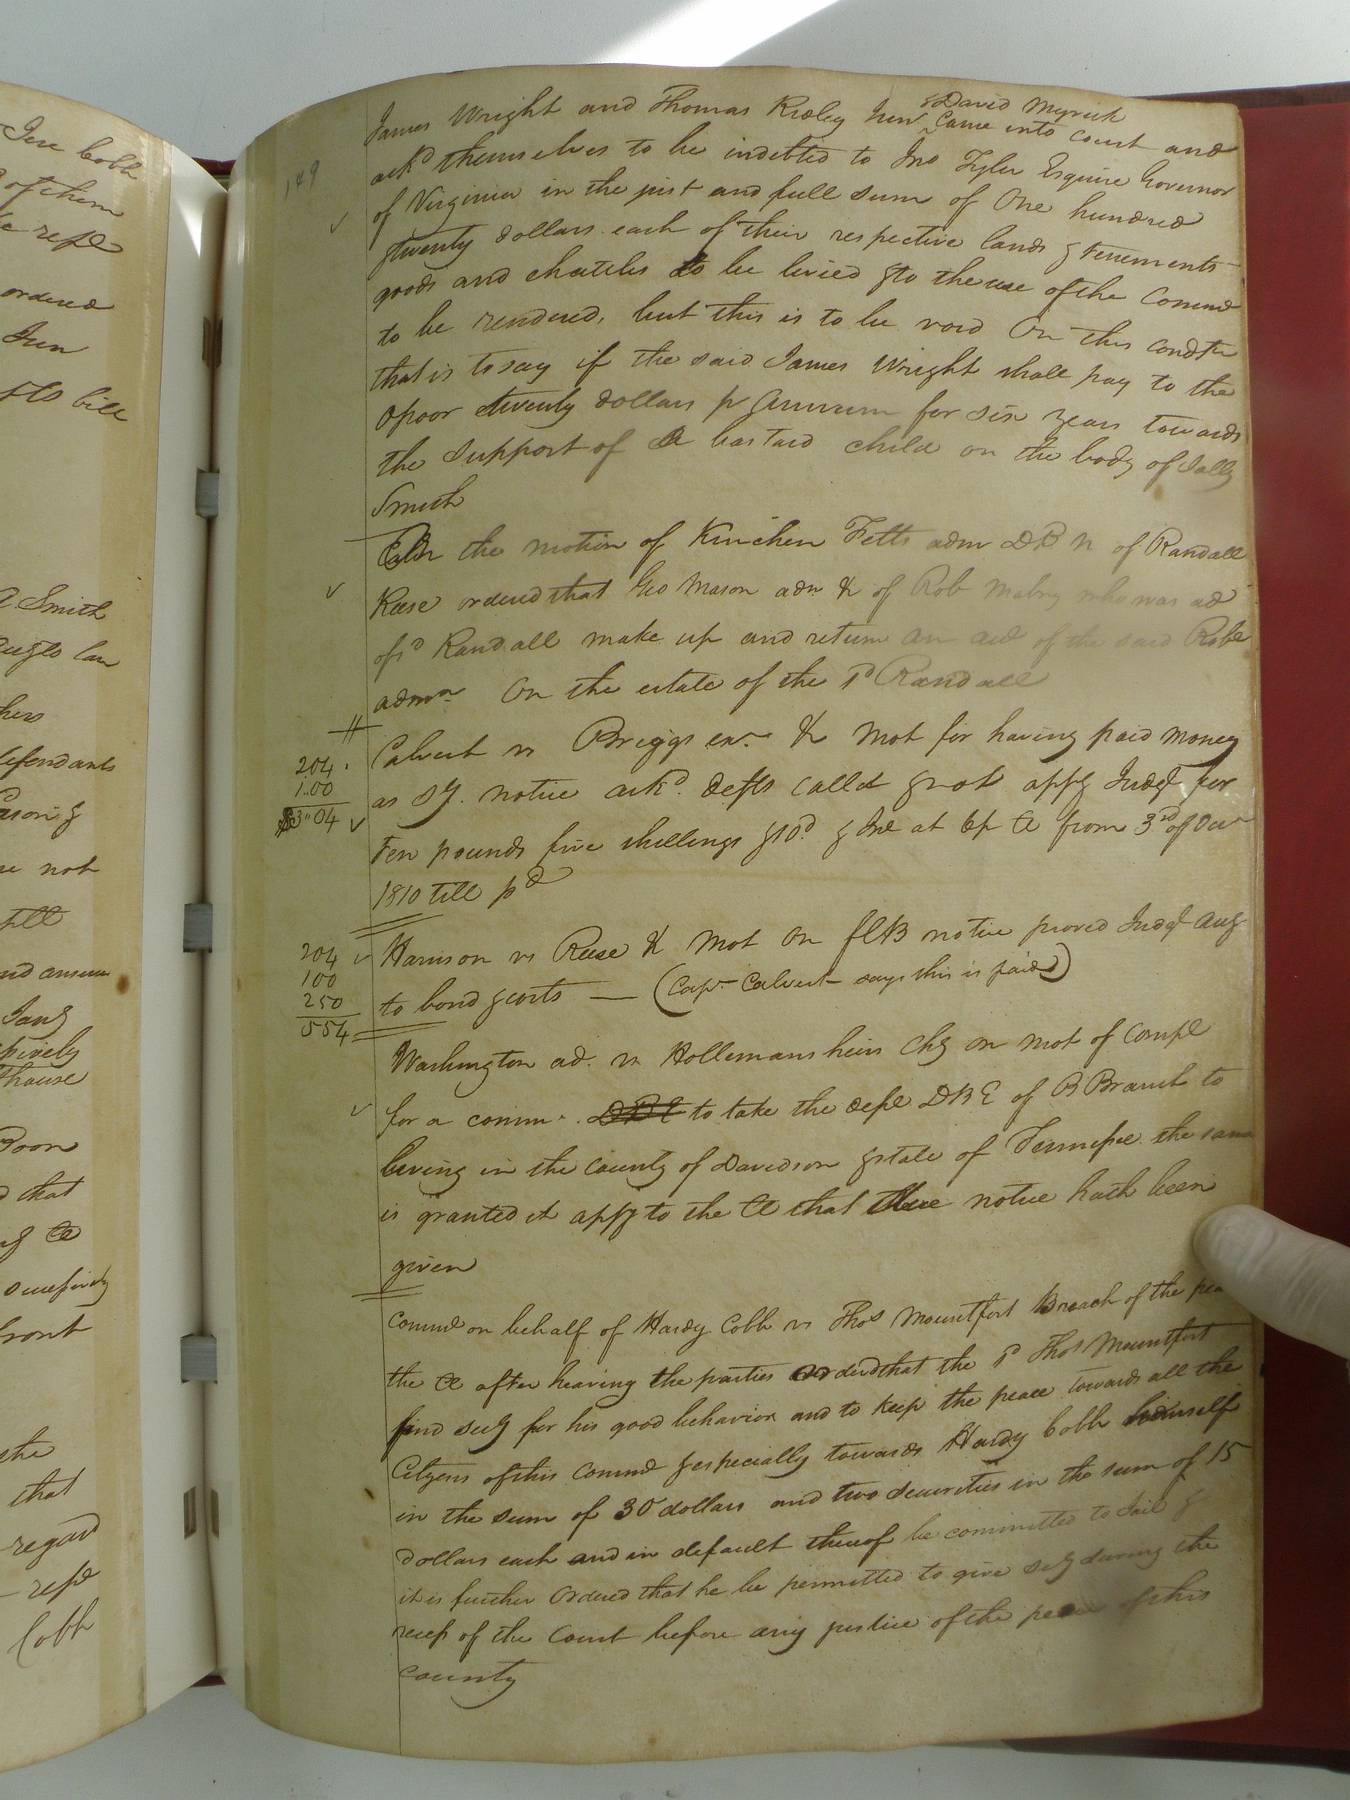 Jese Cobb
of them
refd
ordered
Jun
bill
Smith
law
hers
defendants
not
till
and answer
Jany
house
Boon
that
front
the
that
regard
Cobb
149
James Wright and Thomas Ridley Junr & David Myrick Came into court and
ackd themselves to be indebted to Jno Tyler Esquire Governor
of Virginia in the just and full sum of One hundred
& twenty dollars each of their respective lands & tenements
goods and chatteles to be levied & to the use of the Comwd
to be rendered, but this is to be void On this condtn
that is to say if the said James Wright shall pay to the
Opoor twenty dollars pr Annum for six years towards
the support of a bastard child on the body of Sally
Smith
On the motion of Kinchen Fetts adm DBN of Randall
Reese ordered that Geo Mason adm &c of Rob Mabry who was ad
of sd Randall make up and return an acct of the said Robt
admn On the estate of the sd Randall
204
1.00
$3"04
Calvert vs Briggs exr &c Mot for having paid money
as Sy. notice ackd. defts called & not appg Judgt for
Ten pounds five shillings & 10d. & Int at 6 p Ct from 3rd of Decr
1810 till pd
204
100
250
554
Harrison vs Reese &c Mot on FCB notice proved Judgt Aug
to bond & costs — (Capt Calvert says this is paid)
Washington ad. vs Hollemans heirs Chy on mot of Complt
for a comm. DBE to take the depo DBE of B Branch to
living in the County of Davidson & state of Tennessee the same
is granted it appg to the Ct that there notice hath been
given
Comwd on behalf of Hardy Cobb vs Thos Mountfort Breach of the pea
the Ct after hearing the parties ordered that the sd Thos Mountfort
find secy for his good behavior and to keep the peace towards all the
Citizens of this Comwd & especially towards Hardy Cobb himself
in the sum of 30 dollars and two securities in the sum of 15
dollars each and in default thereof be committed to Jail &
it is further Ordered that he be permitted to give secy during the
recess of the Court before any justice of the peace of this
County